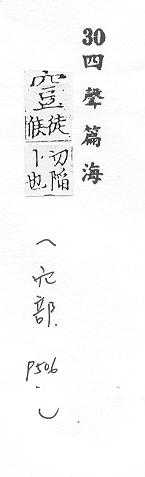 30 四聲篇海
徒切陷
候卜也
（穴部. P506.）